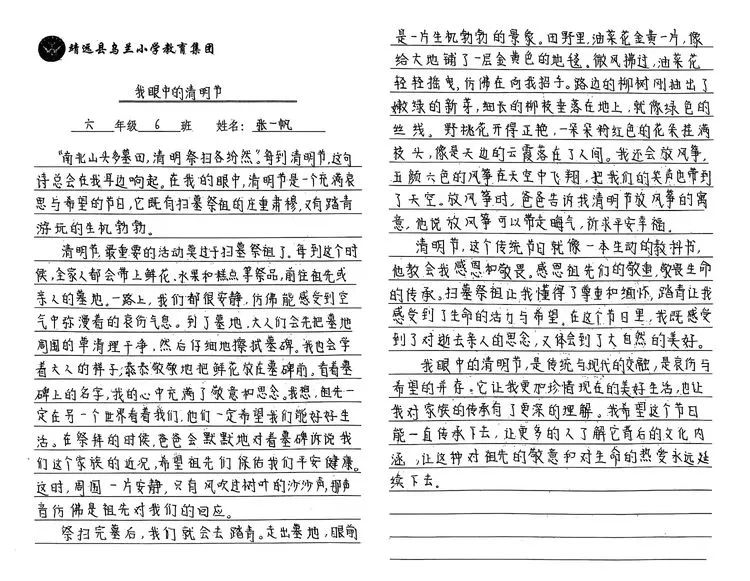 靖远县乌兰小学教育集团
我眼中的清明节
六 年级 6 班 姓名: 张一帆
“南北山头多墓田,清明祭扫各纷然”。每到清明节,这句
诗总会在我耳边响起。在我的眼中,清明节是一个充满哀
思与希望的节日,它既有扫墓祭祖的庄重肃穆,又有踏青
游玩的生机勃勃。
清明节,最重要的活动莫过于扫墓祭祖了。每到这个时
候,全家人都会带上鲜花、水果和糕点等祭品,前往祖先或
亲人的墓地。一路上,我们都很安静,仿佛能感受到空
气中弥漫着的哀伤气息。到了墓地,大人们会先把墓地
周围的草清理干净,然后仔细地擦拭墓碑。我也会学
着大人的样子,恭恭敬敬地把鲜花放在墓碑前。看着墓
碑上的名字,我的心中充满了敬意和思念。我想,祖先一
定在另一个世界看着我们,他们一定希望我们能好好生
活。在祭拜的时候,爸爸会默默地对着墓碑诉说我
们这个家族的近况,希望祖先们保佑我们平安健康。
这时,周围一片安静,只有风吹过树叶的沙沙声,那声
音仿佛是祖先对我们的回应。
祭扫完墓后,我们就会去踏青。走出墓地,眼前
是一片生机勃勃的景象。田野里,油菜花金黄一片,像
给大地铺了一层金黄色的地毯。微风拂过,油菜花
轻轻摇曳,仿佛在向我招手。路边的柳树刚抽出了
嫩绿的新芽,细长的柳枝垂落在地上,就像绿色的
丝线。野桃花开得正艳,一朵朵粉红色的花朵挂满
枝头,像是天边的云霞落在了人间。我还会放风筝,
五颜六色的风筝在天空中飞翔,把我们的笑声也带到
了天空。放风筝时,爸爸告诉我清明节放风筝的寓
意,他说放风筝可以带走晦气,祈求平安幸福。
清明节,这个传统节日就像一本生动的教科书,
他教会我感恩和敬畏。感恩祖先们的敬重,敬畏生命
的传承。扫墓祭祖让我懂得了尊重和缅怀,踏青让我
感受到了生命的活力与希望。在这个节日里,我既感受
到了对逝去亲人的思念,又体会到了大自然的美好。
我眼中的清明节,是传统与现代的交融,是哀伤与
希望的并存。它让我更加珍惜现在的美好生活,也让
我对家族的传承有了更深的理解。我希望这个节日
能一直传承下去,让更多的人了解它背后的文化内
涵,让这种对祖先的敬意和对生命的热爱永远延
续下去。